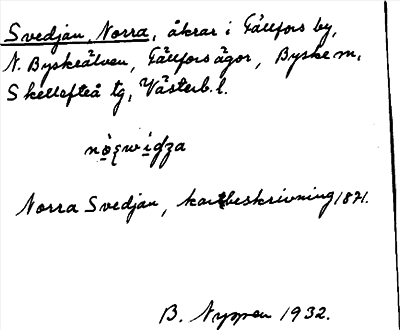 Svedjan, Norra, åkrar i Fällfors by,
N. Byskeälven, Fällfors ägor, Byske m,
Skellefteå tg, Västerb. l.
Norra Svedjan, kartbeskrivning 1871.
B. Nyppen 1932.